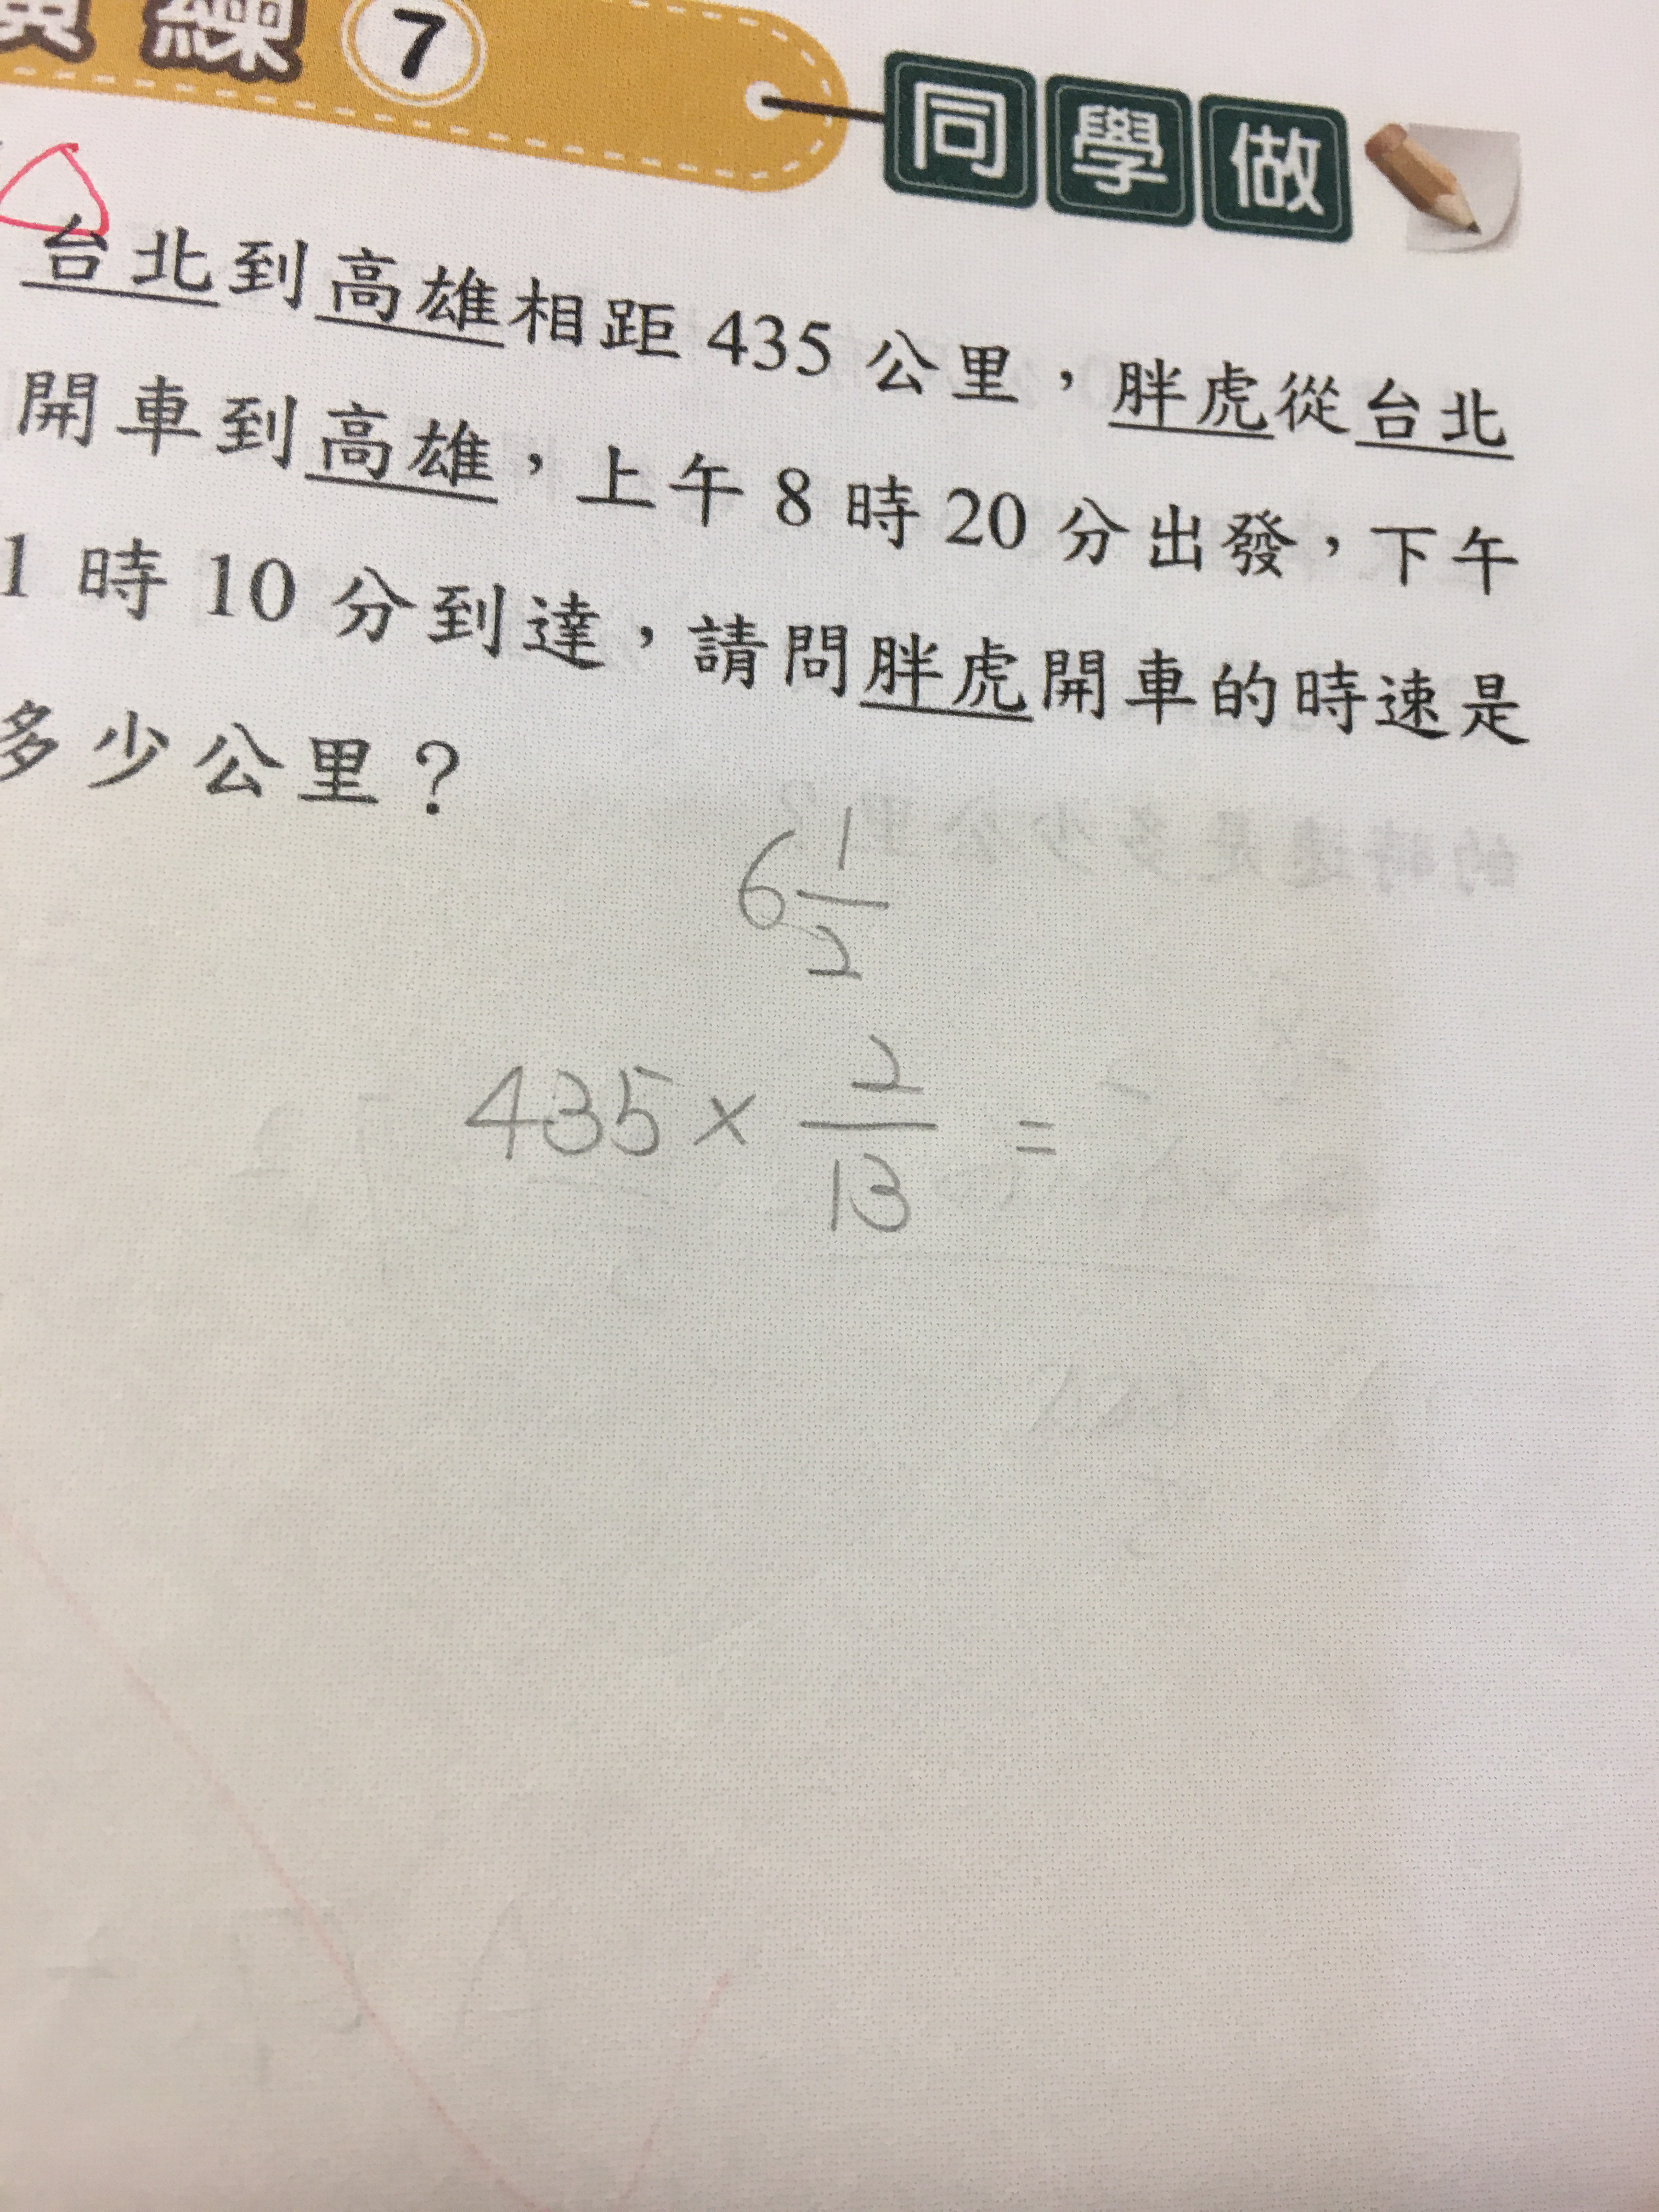 練 7 同學做
台北到高雄相距 435 公里，胖虎從台北
開車到高雄，上午 8 時 20 分出發，下午
1 時 10 分到達，請問胖虎開車的時速是
多少公里？
6 1/2
435 × 2/13 =